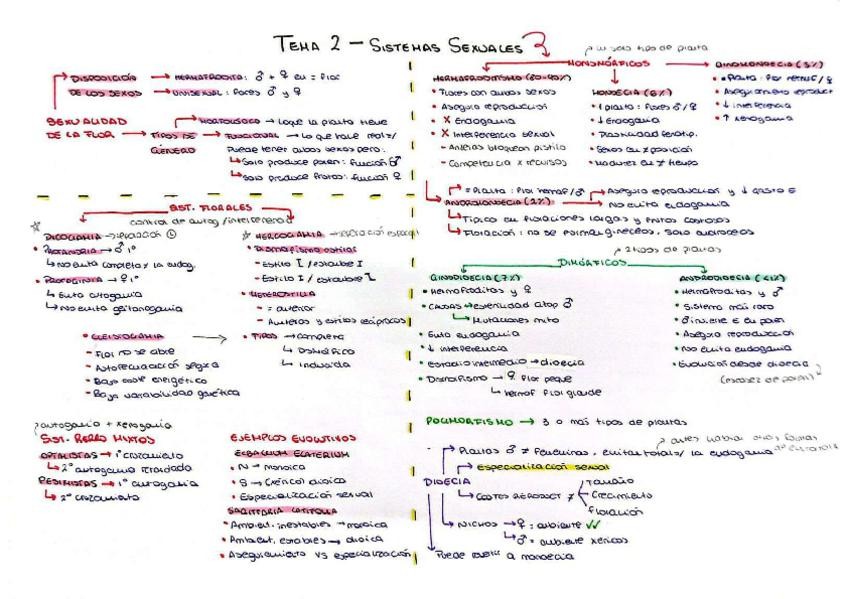 TEMA 2 - SISTEMAS SEXUALES
DISPOSICIÓN DE LOS SEXOS
→ HERMAFRODITA: ♂ + ♀ en = flor
→ UNISEXUAL: flores ♂ y ♀
SEXUALIDAD DE LA FLOR
→ TIPOS DE GÉNERO
→ MORFOLÓGICO → lo que la planta tiene
→ FUNCIONAL → lo que hace real//
Puede tener ambos sexos pero:
↳ Solo produce polen: función ♂
↳ Solo produce frutos: función ♀
SIST. FLORALES
control de autog/interferencia
DICOGAMIA → separación
• PROTANDRIA → ♂ 1º
↳ No evita completa// la endog.
• PROTOGINIA → ♀ 1º
↳ Evita autogamia
↳ No evita geitonogamia
HERCOGAMIA → separación espacial
• Dismorfismo estilar
- Estilo I / estambre I
- Estilo I / estambre I
• HETEROSTILIA
- = anterior
- Anteras y estilos recíprocos
• TIPOS → completa
↳ Dismórfico
↳ Incluida
• CLEISTOGAMIA →
- Flor no se abre
- Autofecundación segura
- Bajo coste energético
- Baja variabilidad genética
autogamia + xenogamia
SIST. REPRO MIXTOS
OPTIMISTAS → 1º cruzamiento
↳ 2º autogamia retardada
PESIMISTAS → 1º autogamia
↳ 2º cruzamiento
EJEMPLOS EVOLUTIVOS
ECBALLIUM ELATERIUM
• N → monoica
• S → (xérico) dioica
• Especialización sexual
SAGITTARIA LATIFOLIA
• Ambient. inestables → monoica
• Ambient. estables → dioica
• Aseguramiento VS especialización
un solo tipo de planta
MONOMÓRFICOS
HERMAFRODITISMO
• Flores con ambos sexos
• Asegura reproducción
• X Endogamia
• X Interferencia sexual
- Anteras bloquean pistilo
- Competencia x recursos
MONOECIA (6%)
• 1 planta: flores ♂/♀
• ↓ Endogamia
• Plasticidad fenotip.
• Sexos en ≠ posición
• Madurez en ≠ tiempo
GINOMONOECIA (3%)
• = Planta: flor hermf/♀
• Aseguramiento reproduct
• ↓ interferencia
• ↑ xenogamia
ANDROMONOECIA (2%)
→ = Planta: flor hermaf/♂
→ Asegura reproducción y ↓ gasto E
→ No evita endogamia
↳ Típico en floraciones largas y frutos costosos
↳ Floración: no se forma gineceo, solo androceos
2 tipos de plantas
DIMÓRFICOS
GINODIOECIA (7%)
• Hermafroditas y ♀
• CAUSAS → esterilidad citop ♂
↳ Mutaciones mito
• Evita endogamia
• ↓ interferencia
• Estadio intermedio → dioecia
• Dismorfismo → ♀ flor peque
↳ hermaf flor grande
ANDRODIOECIA (<1%)
• Hermafroditas y ♂
• Sistema más raro
• ♂ invierte E en polen
• Asegura reproducción
• No evita endogamia
• Evolución desde dioecia
(escasez de polen)
POLIMORFISMO → 3 o más tipos de plantas
DIOECIA
→ Plantas ♂ ≠ femeninas, evitan total// la endogamia
→ Especialización sexual
↳ COSTES REPRODUCT ≠
Tamaño
Crecimiento
Floración
→ NICHOS → ♀ = ambiente ✓✓
↳ ♂ = ambiente xéricos
Puede a monoecia